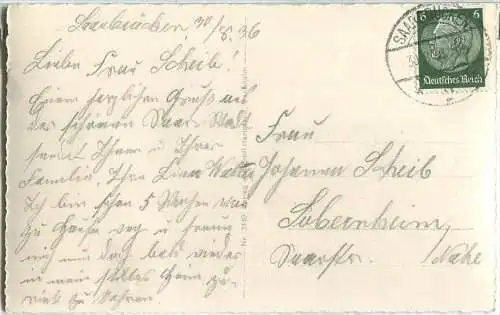 Saarbrücken, 30/8.36
Liebe Frau Scheib!
Einen herzlichen Gruß aus
der schönen Saar Stadt
sendet Ihnen u Ihrer
Familie, Ihre Lina
Ich bin schon 5 Wochen von
zu Hause weg u freue
mich nun doch bald wieder
in mein stilles Heim zu-
rück zu kehren.
Frau
Johanna Scheib
Sobernheim,
Saarstr. Nahe
SAARBRÜCKEN
6 6
Deutsches Reich